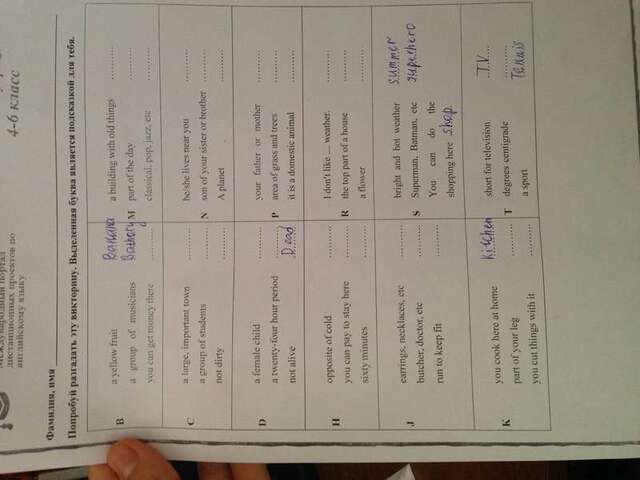 Международный портал
дистанционных проектов по
английскому языку
4-6 класс
Фамилия, имя
Попробуй разгадать эту викторину. Выделенная буква является подсказкой для тебя.
B
a yellow fruit Banana
a group of musicians
you can get money there ..........
M
a building with old things ..........
part of the day ..........
classical, pop, jazz, etc ..........
C
a large, important town ..........
a group of students ..........
not dirty ..........
N
he/she lives near you ..........
son of your sister or brother ..........
A planet ..........
D
a female child ..........
a twenty-four hour period ..........
not alive Dead
P
your father or mother ..........
area of grass and trees ..........
it is a domestic animal ..........
H
opposite of cold ..........
you can pay to stay here ..........
sixty minutes ..........
R
I don't like .... weather. ..........
the top part of a house ..........
a flower ..........
J
earrings, necklaces, etc ..........
butcher, doctor, etc ..........
run to keep fit ..........
S
bright and hot weather summer
Superman, Batman, etc superhero
You can do the
shopping here shop.
K
you cook here at home kitchen
part of your leg ..........
you cut things with it ..........
T
short for television T.V.
degrees centigrade ..........
a sport Tennis